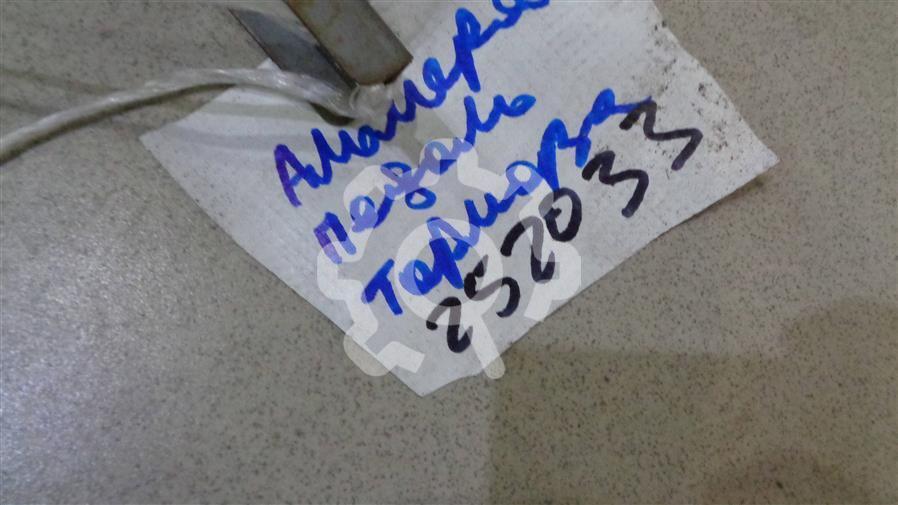 Алмера
педаль
тормоза
252033